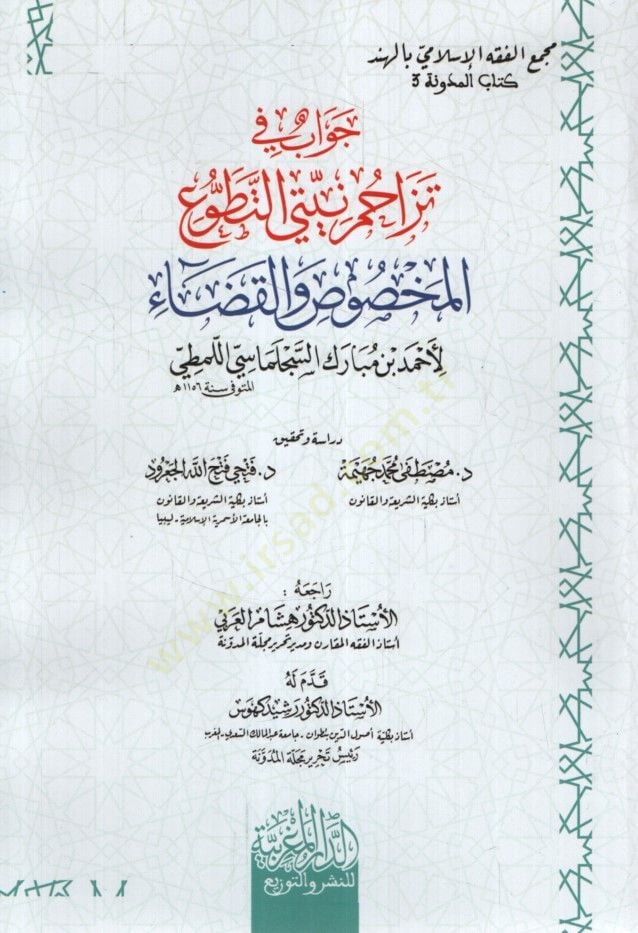 مجمع الفقه الإسلامي بالهند
كتاب المدونة 3
جَوَابٌ فِي
تَزَاحُمِ نِيَّتَيِ التَّطَوُّعِ
المَخْصُوصِ وَالقَضَاءِ
لِأَحْمَدَ بْنِ مُبَارَك السِّجِلْمَاسِيِّ اللَّمَطِيِّ
المتوفى سنة ١١٥٦ هـ
دراسة وتحقيق
د. مصطفى محمد جهيمة
د. فتحي فتح الله الجعرود
أستاذ بكلية الشريعة والقانون
أستاذ بكلية الشريعة والقانون
بالجامعة الأسمرية الإسلامية - ليبيا
رَاجَعَهُ :
الأستاذ الدكتور هشام العربي
أستاذ الفقه المقارن ومدير تحرير مجلة المدونة
قَدَّمَ لَهُ
الأستاذ الدكتور رشيد كهوس
أستاذ بكلية أصول الدين بتطوان - جامعة عبد المالك السعدي - المغرب
رئيس تحرير مجلة المدونة
الدار المغربية
للنشر والتوزيع
www.irsad.com.tr